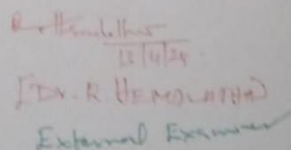 13/4/24
[Dr. R. HEMALATHA]
External Examiner